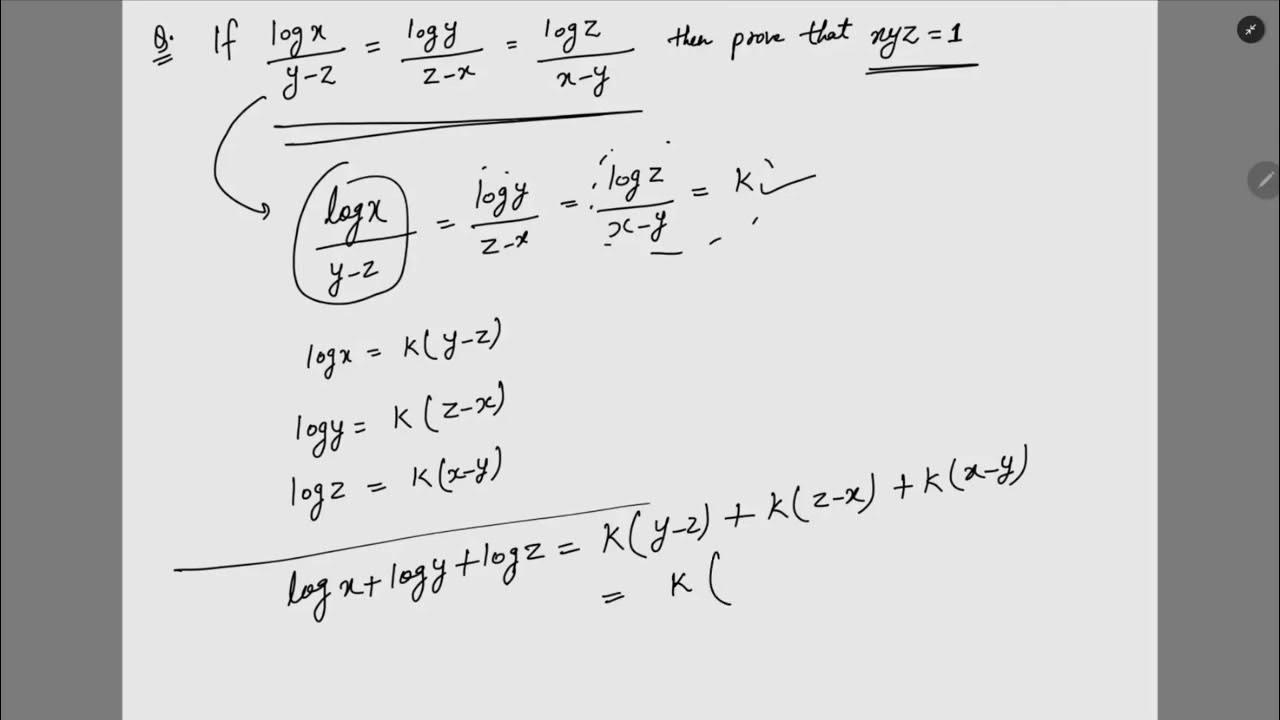 Q. If log x / y-z = log y / z-x = log z / x-y then prove that xyz = 1
log x / y-z = log y / z-x = log z / x-y = K
log x = K(y-z)
log y = K(z-x)
log z = K(x-y)
log x + log y + log z = K(y-z) + K(z-x) + K(x-y)
= K(